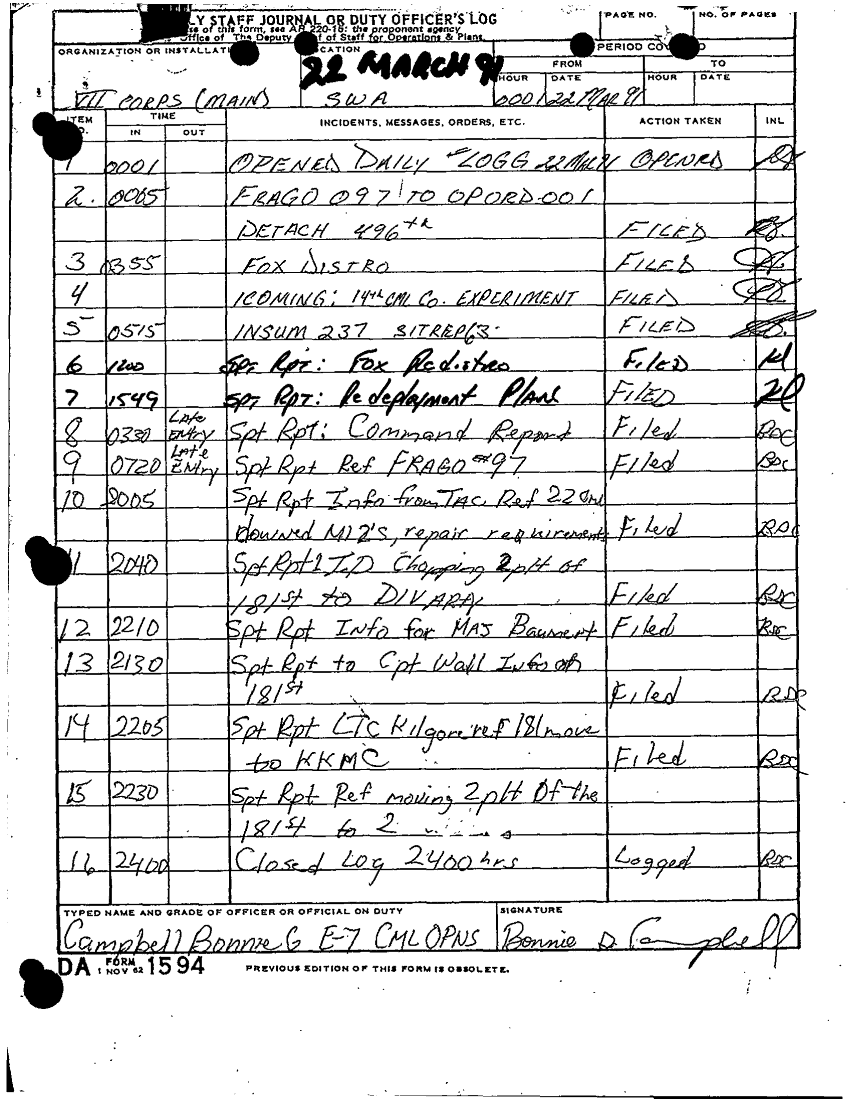 LY STAFF JOURNAL OR DUTY OFFICER'S LOG
se of this form, see AR 220-15: the proponent agency
Office of The Deputy of Staff for Operations & Plans.
PAGE NO. NO. OF PAGES
ORGANIZATION OR INSTALLAT CATION PERIOD CO D
22 MARCH 91
FROM TO
HOUR DATE HOUR DATE
VII CORPS (MAIN) SWA 0001 22 MAR 91
ITEM NO. TIME INCIDENTS, MESSAGES, ORDERS, ETC. ACTION TAKEN INL
IN OUT
1 0001 OPENED DAILY LOGG 22 MAR 91 OPENED
2. 0065 FRAGO 097 TO OPORD-001
DETACH 496th FILED
3 0355 FOX DISTRO FILED
4 ICOMING: 14th CML Co. EXPERIMENT FILED
5 0515 INSUM 237 SITREP 63 FILED
6 1200 Spt Rpt: Fox Redistro Filed
7 1549 Spt Rpt: Redeployment Plans FILED
8 0330 Late Entry Spt Rpt: Command Report Filed BDC
9 0720 Late Entry Spt Rpt Ref FRAGO #97 Filed BDC
10 2005 Spt Rpt Info from TAC, Ref 22
downed M12's, repair requirements Filed BDC
11 2040 Spt Rpt 1 I.D Chopping 2 plt of
181st to DIVARTY Filed BDC
12 2210 Spt Rpt Info for MAJ Filed BDC
13 2130 Spt Rpt to Cpt Wall Info on
181st Filed BDC
14 2205 Spt Rpt LTC Kilgore ref 181 move
to KKMC Filed BDC
15 2230 Spt Rpt Ref moving 2 plt Of the
181st to 2
16 2400 Closed Log 2400 hrs Logged BDC
TYPED NAME AND GRADE OF OFFICER OR OFFICIAL ON DUTY SIGNATURE
Campbell Bonnie G E-7 CML OPNS Bonnie D. Campbell
DA FORM 1 NOV 62 1594 PREVIOUS EDITION OF THIS FORM IS OBSOLETE.